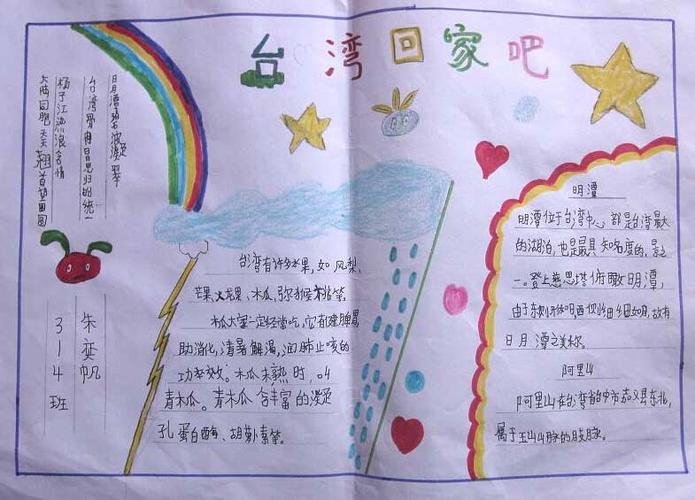 台湾回家吧
日月潭碧波凝翠
台湾骨肉日日思归的统一
杨子江流浪含情
大陆同胞天天翘首望团圆
朱奕帆
314班
台湾有许多水果,如风梨、
芒果、火龙果、木瓜、弥猴桃等。
木瓜大家一定经常吃,它有健脾胃
助消化,清暑解渴,润肺止咳的
功效。木瓜未熟时,叫
青木瓜。青木瓜含丰富的凝
乳蛋白酶、胡勒素等。
明潭
明潭位于台湾中心,都是台湾最大
的湖泊,也是最具知名度的景之
一。登上慈恩塔俯瞰明潭,
由于东则形如日西如月,故有
日月潭之美称
阿里山
阿里山在台湾省的中市嘉义县东北,
属于玉山山脉的支脉。